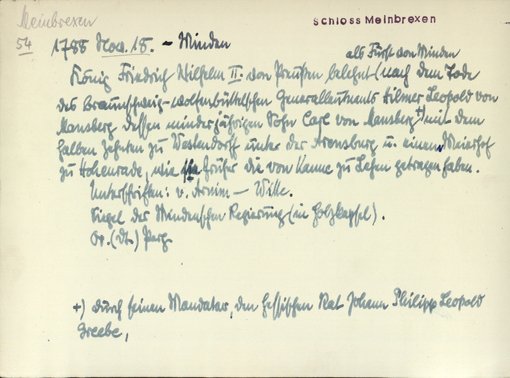 Meinbrexen
Schloss Meinbrexen
54 1788 Nov. 18. – Minden
als Fürst von Minden
König Friedrich Wilhelm II. von Preußen belehnt (nach dem Tode
des braunschweig-wolfenbüttelschen Generalleutnants Hilmer Leopold von
Mansberg dessen minderjährigen Sohn Carl von Mansberg +) mit dem
halben Zehnten zu Westendorf unter der Arensburg u. einem Meierhof
zu Hohenrade, wie früher die von Kanne zu Lehen getragen haben.
Unterschriften: v. Arnim – Wille.
Siegel der Mindenschen Regierung (in Holzkapsel).
Or. (dt.) Perg.
+) durch seinen Mandatar, den hessischen Rat Johann Philipp Leopold
Greebe,